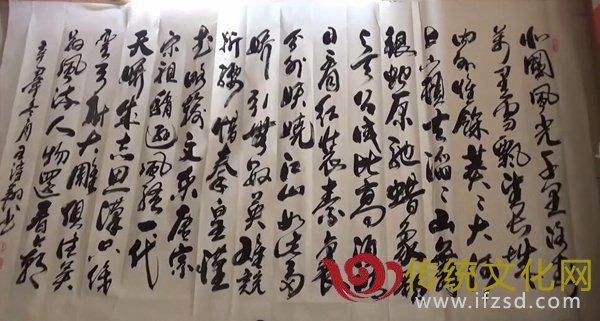 北國風光千里冰封
萬里雪飄望長城
內外惟餘莽々大河
上下頓失滔々山舞
銀蛇原馳蠟象欲
與天公試比高須晴
日看紅裝素裹
分外妖嬈江山如此多
嬌引無數英雄競
折腰惜秦皇漢
武略輸文采唐宗
宋祖稍遜風騷一代
天驕成吉思漢只識
彎弓射大雕俱往矣
數風流人物還看今朝
传统文化网
www.ifzsd.com